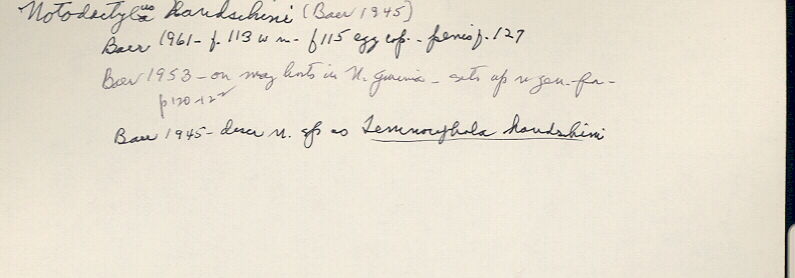 Notodactylus handschini (Baer 1945)
Baer 1961 - f. 113 w m - f 115 egg cap. - penis f. 127
Baer 1953 - on many hosts in N. Guinea - sets up n gen. for -
p 120-122
Baer 1945 - descr n. sp as Temnocephala handschini